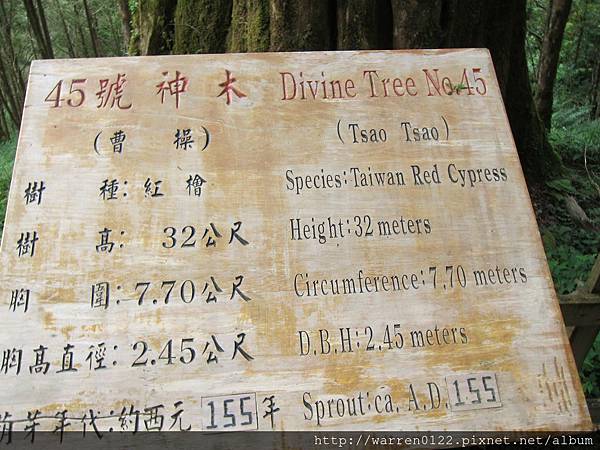 45號 神木 Divine Tree No.45
(曹 操) (Tsao Tsao)
樹 種: 紅檜 Species: Taiwan Red Cypress
樹 高: 32公尺 Height: 32 meters
胸 圍: 7.70公尺 Circumference: 7.70 meters
胸高直徑: 2.45公尺 D.B.H: 2.45 meters
萌芽年代: 約西元 155年 Sprout: ca. A.D. 155
http://warren0122.pixnet.net/album